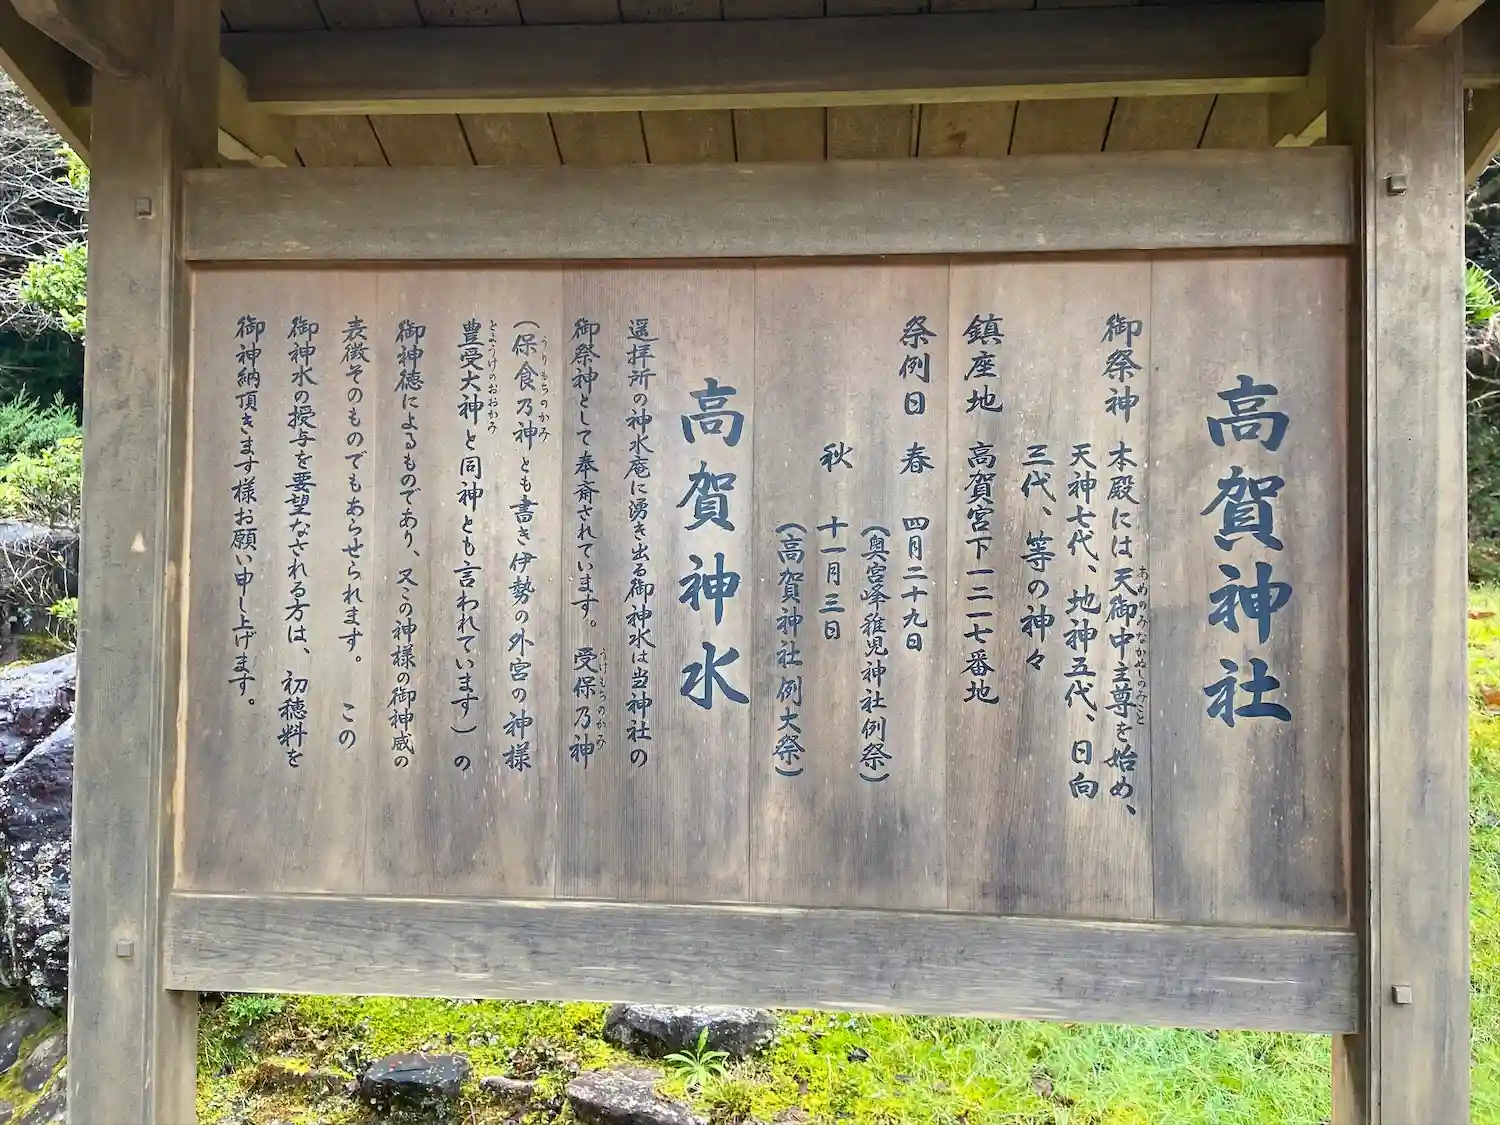 高賀神社
御祭神 本殿には天御中主尊を始め、
あめのみなかぬしのみこと
天神七代、地神五代、日向
三代、等の神々
鎮座地 高賀宮下一三一七番地
祭例日 春 四月二十九日
(奥宮峰稚児神社例祭)
秋 十一月三日
(高賀神社例大祭)
高賀神水
遥拝所の神水庵に湧き出る御神水は当神社の
御祭神として奉斎されています。受保乃神
うけもちのかみ
(保食乃神とも書き伊勢の外宮の神様
うりもちのかみ
豊受大神と同神とも言われています)の
とようけのおおかみ
御神徳によるものであり、又この神様の御神威の
表徴そのものでもあらせられます。 この
御神水の授与を要望なされる方は、初穂料を
御神納頂きます様お願い申し上げます。